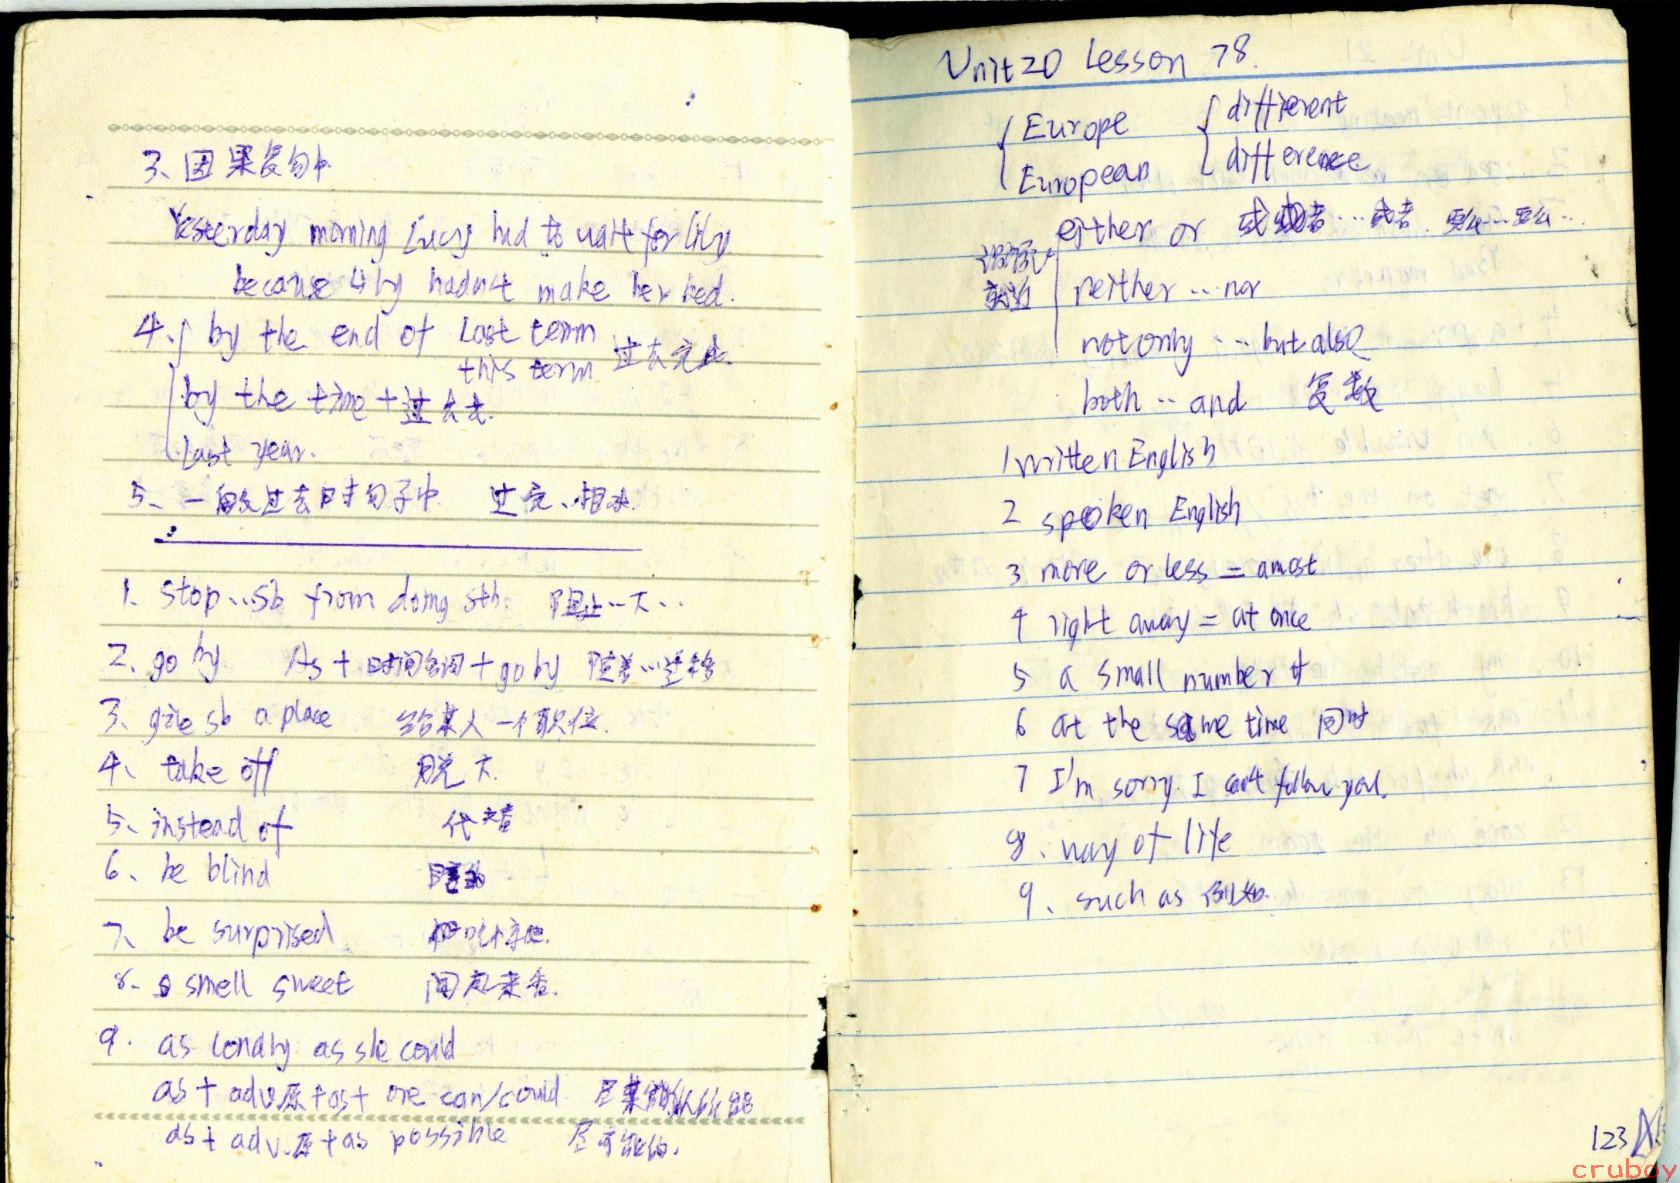 3、因果复句中
Yesterday morning Lucy had to wait for lily
because lily hadn't make her bed.
4、by the end of last term
this term 过去完成
by the time + 过去
last year.
5、一般过去时句子中 过完、相
1、stop...sb from doing sth. 阻止……
2、go by As + 时间名词 + go by 随着…迁移
3、give sb a place 给某人一个职位.
4、take off 脱下
5、instead of 代替
6、be blind
7、be surprised
8. smell sweet 闻起来香.
9. as londly as she could
as + adv原 + as + one can/could 尽某
as + adv.原 + as possible 尽可能的.
Unit 20 Lesson 78.
Europe different
European difference
either or 或或者…或者. 要么…要么…
neither … nor
not only … but also
both … and 复数
1 written English
2 spoken English
3 more or less = amost
4 right away = at once
5 a small number of
6 at the same time 同时
7 I'm sorry. I can't follow you.
8. way of life
9、such as 例如.
123
cruboy